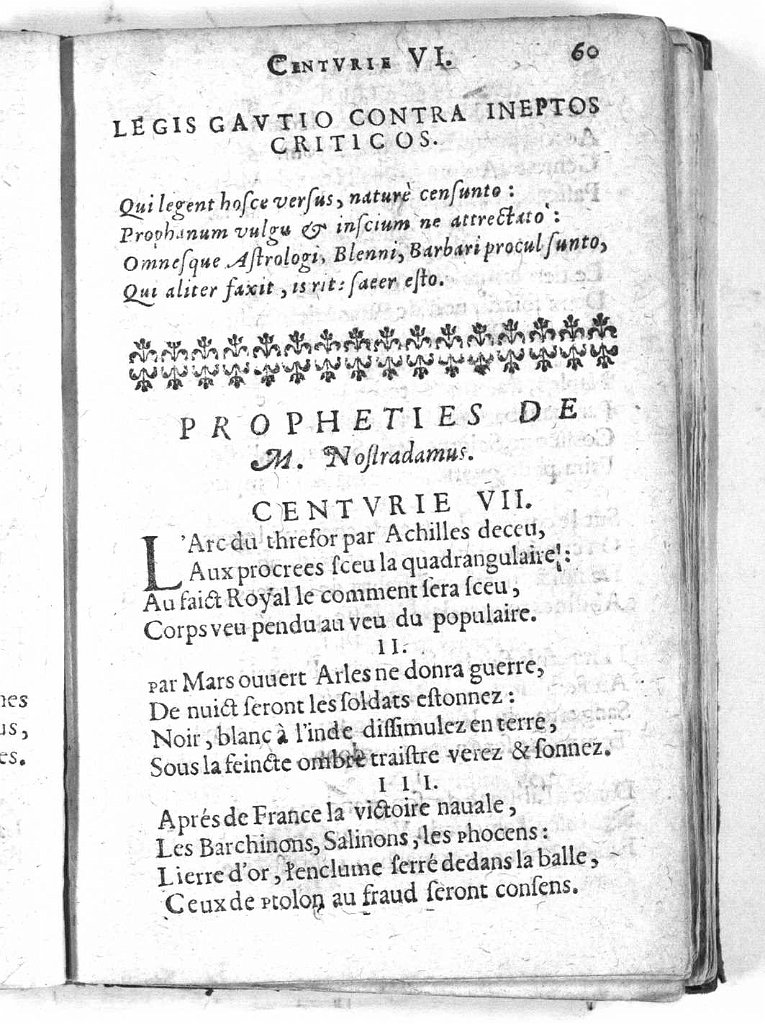 CENTVRIE VI. 60
LEGIS GAVTIO CONTRA INEPTOS
CRITICOS.
Qui legent hoſce verſus, naturè cenſunto :
Prophanum vulgu & inſcium ne attrectato :
Omneſque Aſtrologi, Blenni, Barbari procul ſunto,
Qui aliter faxit, is rit: ſacer eſto.
PROPHETIES DE
M. Noſtradamus.
CENTVRIE VII.
L'Arc du threſor par Achilles deceu,
Aux procrees ſceu la quadrangulaire :
Au faict Royal le comment ſera ſceu,
Corps veu pendu au veu du populaire.
II.
par Mars ouuert Arles ne donra guerre,
De nuict ſeront les ſoldats eſtonnez :
Noir, blanc à l'inde diſſimulez en terre,
Sous la feincte ombre traiſtre verez & ſonnez.
III.
Aprés de France la victoire nauale,
Les Barchinons, Salinons, les phocens :
Lierre d'or, l'enclume ſerré dedans la balle,
Ceux de ptolon au fraud ſeront conſens.